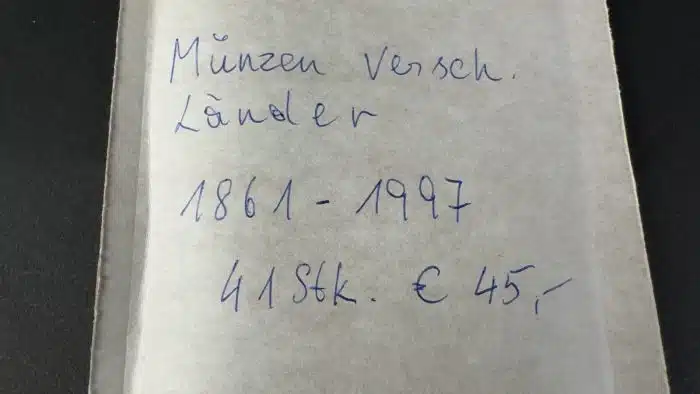 Münzen versch.
Länder
1861 - 1997
41 Stk. € 45,-